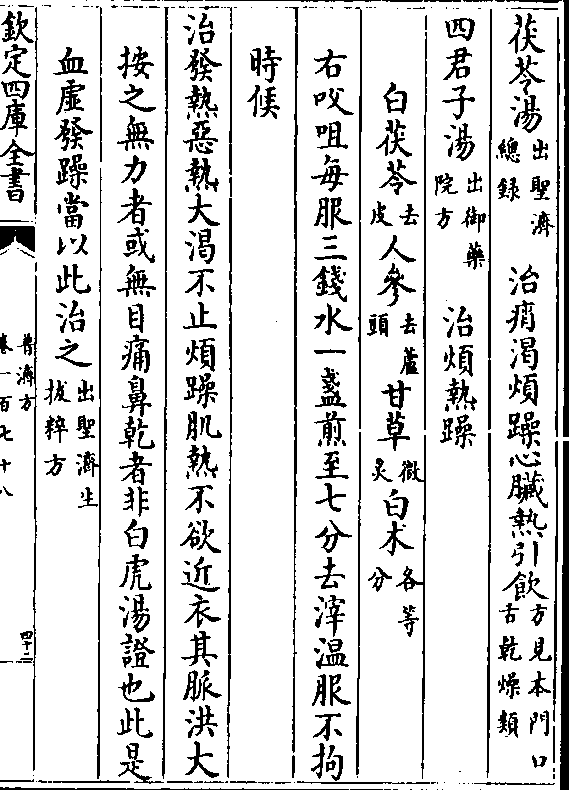 茯苓湯出聖濟總錄　治痟渴煩躁心臟熱引飲方見本門口舌乾燥類
四君子湯出御藥院方　治煩熱躁
白茯苓去皮人參去蘆頭甘草微炙白术各等分
右㕮咀每服三錢水一盞煎至七分去滓温服不拘
時候
治發熱惡熱大渴不止煩躁肌熱不欲近衣其脈洪大
按之無力者或無目痛鼻乾者非白虎湯證也此是
血虛發躁當以此治之出聖濟生拔粹方
欽定四庫全書
普濟方
卷一百七十八
四十二